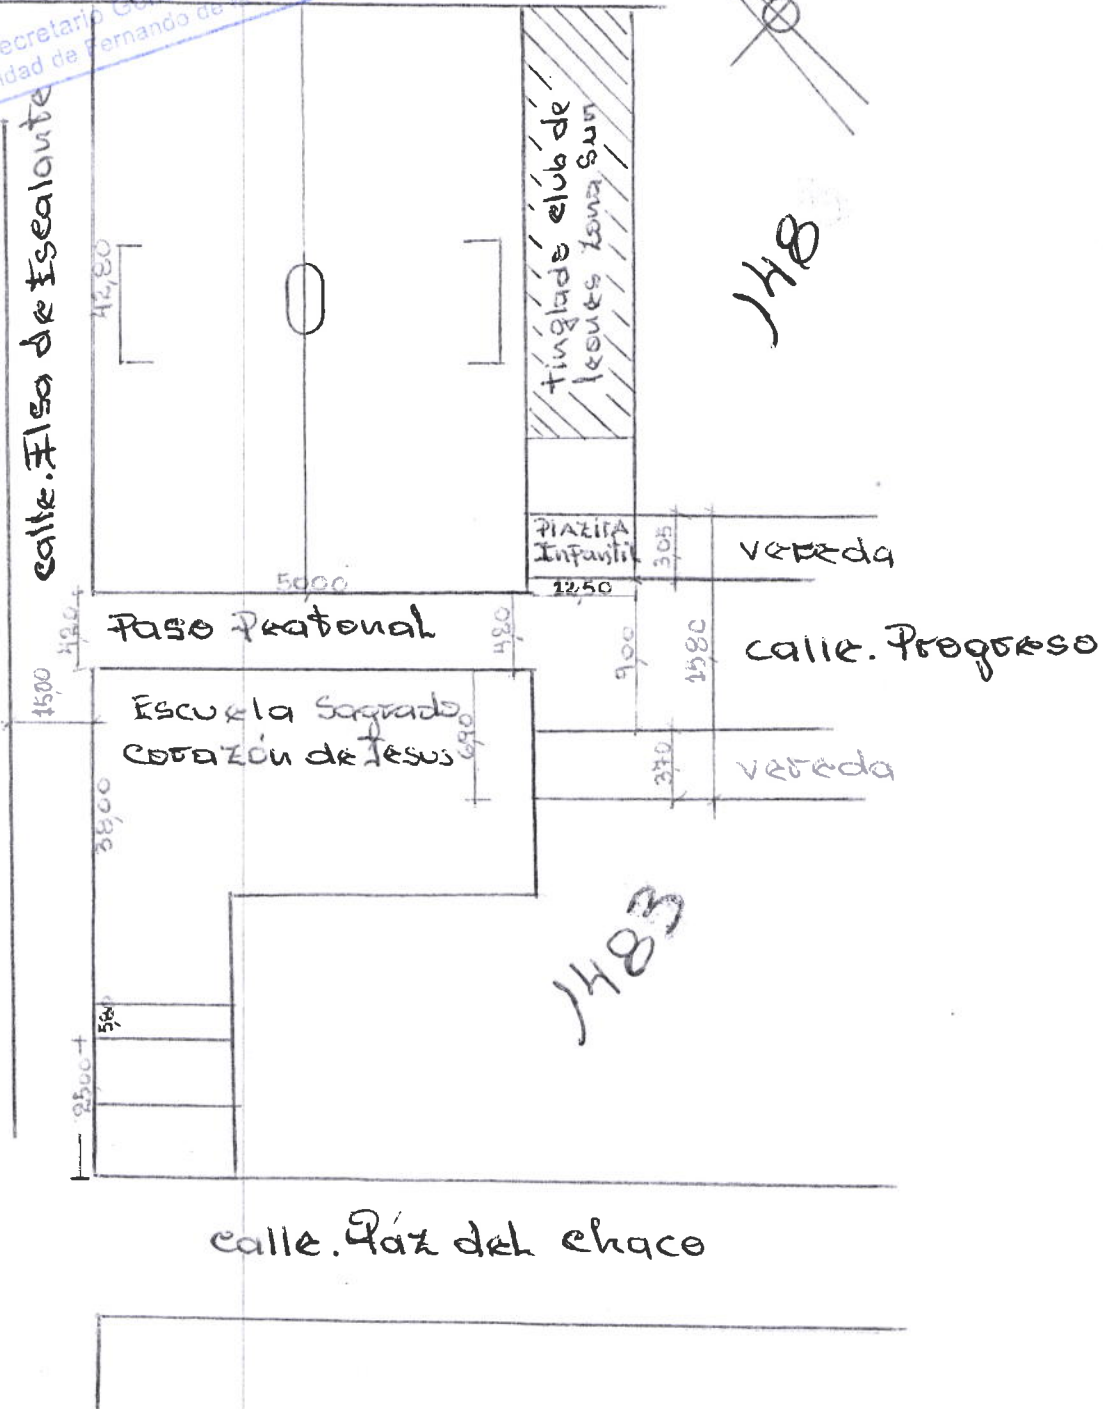 ecretario
idad de Fernando de
calle.Elsa de Escalante
42,80
tinglado club de
leones zona sur
148
PlAZitA
Infantil
305
vereda
5000
12,50
420
Paso Peatonal
480
900
1580
calle.Progreso
1500
Escuela Sagrado
Corazón de Jesus
690
370
vereda
38,00
1483
5,80
2500
calle.Páz del chaco